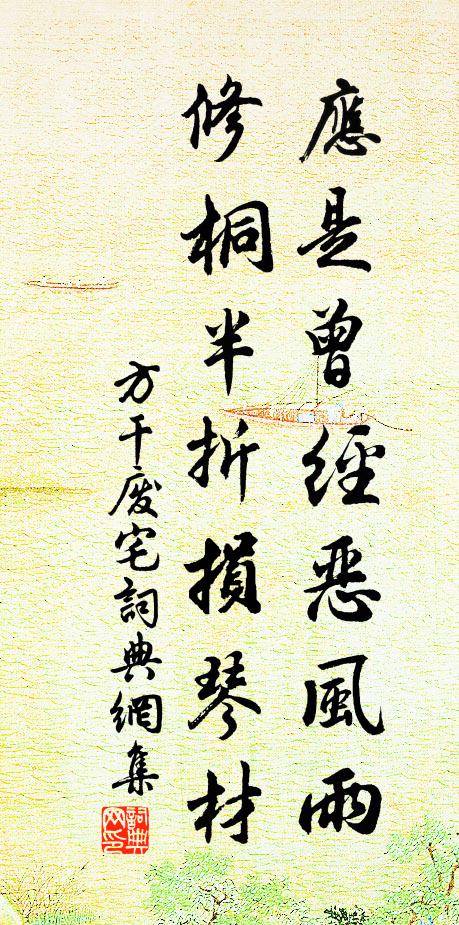 應是曾經惡風雨
修桐半折損琴材
方干廢宅詞典網集
詞典網印